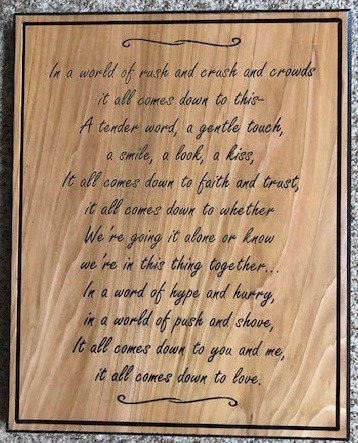 In a world of rush and crush and crowds
it all comes down to this-
A tender word, a gentle touch,
a smile, a look, a kiss,
It all comes down to faith and trust,
it all comes down to whether
We're going it alone or know
we're in this thing together...
In a word of hype and hurry,
in a world of push and shove,
It all comes down to you and me,
it all comes down to love.